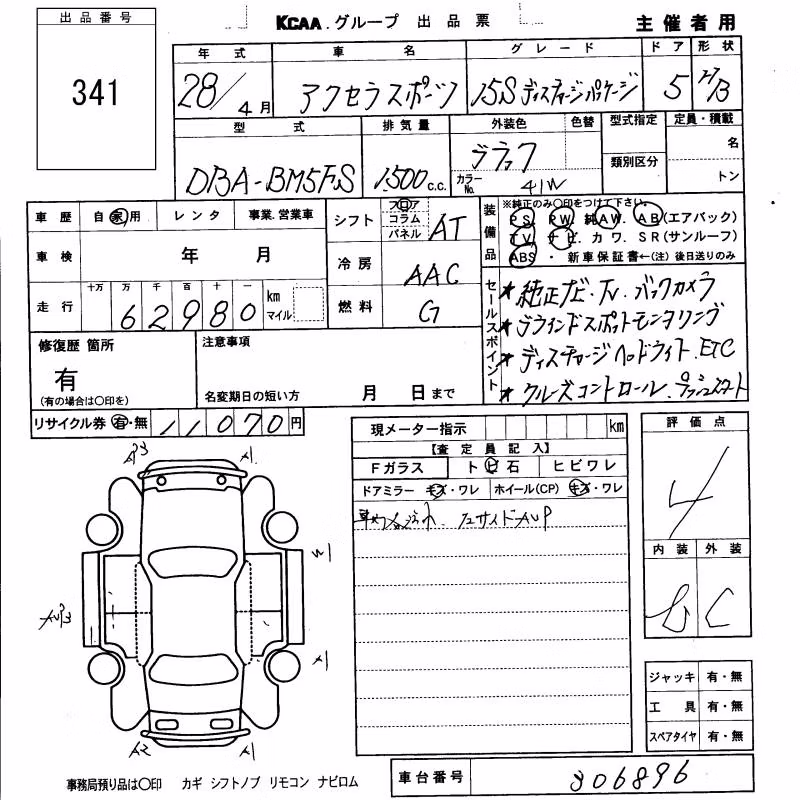 出品番号
341
KCAA.グループ 出品票
主催者用
年式 車名 グレード ドア 形状
28/4月 アクセラスポーツ 15S ディスチャージパッケージ 5 H/B
型式 排気量 外装色 色替 型式指定 定員・積載
DBA-BM5FS 1500c.c. ブラック 類別区分 名
カラーNo. 41W トン
車歴 自家用 レンタ 事業.営業車
シフト フロア コラム パネル AT
車検 年 月
冷房 AAC
走行 十万 万 千 百 十 一 km マイル
62980
燃料 G
装備品 ※純正のみ○印をつけて下さい。
PS PW 純AW. AB(エアバック)
TV ナビ.カワ.SR(サンルーフ)
ABS・新車保証書←(注)後日送りのみ
セールスポイント
★純正ナビ.TV.バックカメラ
★ブラインドスポットモニタリング
★ディスチャージヘッドライト.ETC
★クルーズコントロール.プッシュスタート
修復歴 箇所
有
(有の場合は○印を)
注意事項
名変期日の短い方 月 日まで
リサイクル券 有・無 11070円
現メーター指示 km
【査定員記入】
Fガラス トビ石 ヒビワレ
ドアミラー キズ・ワレ ホイール(CP) キズ・ワレ
評価点
4
内装 外装
C
ジャッキ 有・無
工具 有・無
スペアタイヤ 有・無
A1
A2
事務局預り品は○印 カギ シフトノブ リモコン ナビロム
車台番号 306896